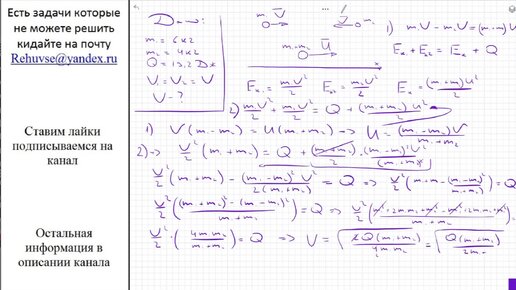 Есть задачи которые
не можете решить
кидайте на почту
Rehuvse@yandex.ru
Ставим лайки
подписываемся на
канал
Остальная
информация в
описании канала
Дано:
m₁ = 6 кг
m₂ = 4 кг
Q = 19,2 Дж
V₁ = V₂ = V
V - ?
1) m₁V - m₂V = (m₁+m₂)U
Eк₁ + Eк₂ = Eк + Q
Eк₁ = m₁V²/2 Eк₂ = m₂V²/2 Eк = (m₁+m₂)U²/2
2) m₁V²/2 + m₂V²/2 = Q + (m₁+m₂)U²/2
1) V(m₁-m₂) = U(m₁+m₂) => U = (m₁-m₂)V/(m₁+m₂)
2) -> V²/2 (m₁+m₂) = Q + (m₁+m₂)/2 · (m₁-m₂)²V²/(m₁+m₂)²
V²/2 (m₁+m₂) - (m₁-m₂)²V²/2(m₁+m₂) = Q => V²/2 (m₁+m₂ - (m₁-m₂)²/(m₁+m₂)) = Q
V²/2 ((m₁+m₂)²-(m₁-m₂)²)/(m₁+m₂) = Q =>
V²/2 · (4m₁m₂/(m₁+m₂)) = Q => V = √(2Q(m₁+m₂)/4m₁m₂) = √(Q(m₁+m₂)/2m₁m₂)